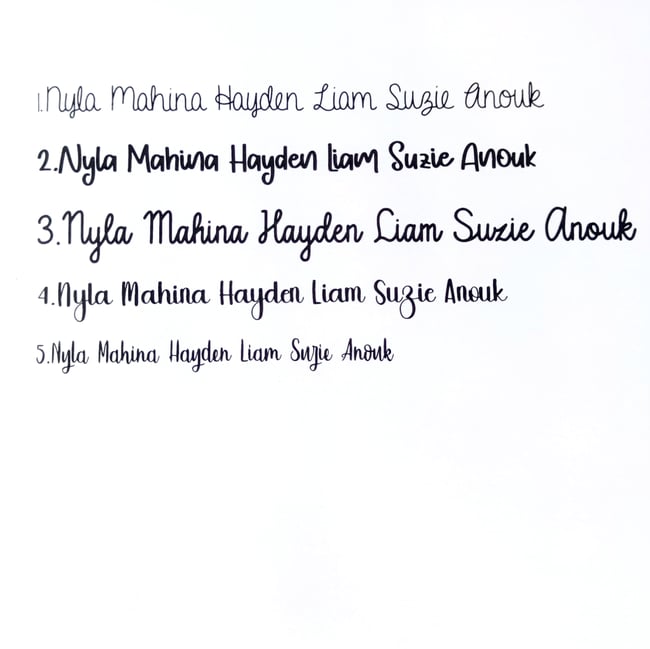 1.Nyla Mahina Hayden Liam Suzie Anouk
2.Nyla Mahina Hayden Liam Suzie Anouk
3.Nyla Mahina Hayden Liam Suzie Anouk
4.Nyla Mahina Hayden Liam Suzie Anouk
5.Nyla Mahina Hayden Liam Suzie Anouk